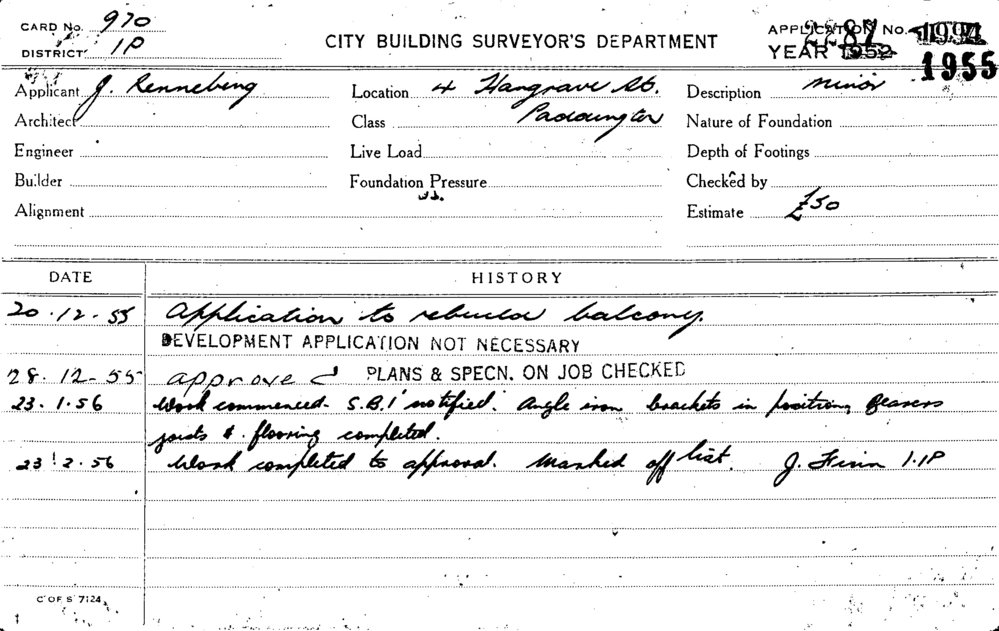 CARD No. 970
DISTRICT 1P
CITY BUILDING SURVEYOR'S DEPARTMENT
APPLICATION No. 2287
YEAR 1952 1955
Applicant J. Renneberg
Location 4 Hargrave St.
Paddington
Description minor
Architect
Class
Nature of Foundation
Engineer
Live Load
Depth of Footings
Builder
Foundation Pressure
Checked by
Alignment
Estimate £50
DATE HISTORY
20.12.55 Application to rebuild balcony.
DEVELOPMENT APPLICATION NOT NECESSARY
28.12-55 approved PLANS & SPECN. ON JOB CHECKED
23.1.56 Work commenced. S.B.I notified. Angle iron brackets in position, Bearers
joists & flooring completed.
23.2.56 Work completed to approval. Marked off list. J. 1.1P
C OF S 7124